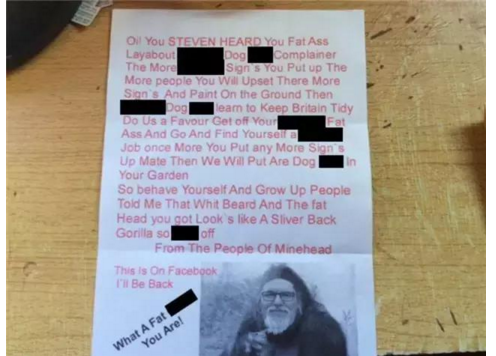 Oi! You STEVEN HEARD You Fat Ass
Layabout Dog Complainer
The More Sign`s You Put up The
More people You Will Upset There More
Sign`s And Paint On the Ground Then
Dog learn to Keep Britain Tidy
Do Us a Favour Get off Your Fat
Ass And Go And Find Yourself a
Job once More You Put any More Sign`s
Up Mate Then We Will Put Are Dog In
Your Garden
So behave Yourself And Grow Up People
Told Me That Whit Beard And The fat
Head you got Look`s like A Sliver Back
Gorilla so off
From The People Of Minehead
This Is On Facebook
I`ll Be Back
What A Fat
You Are!